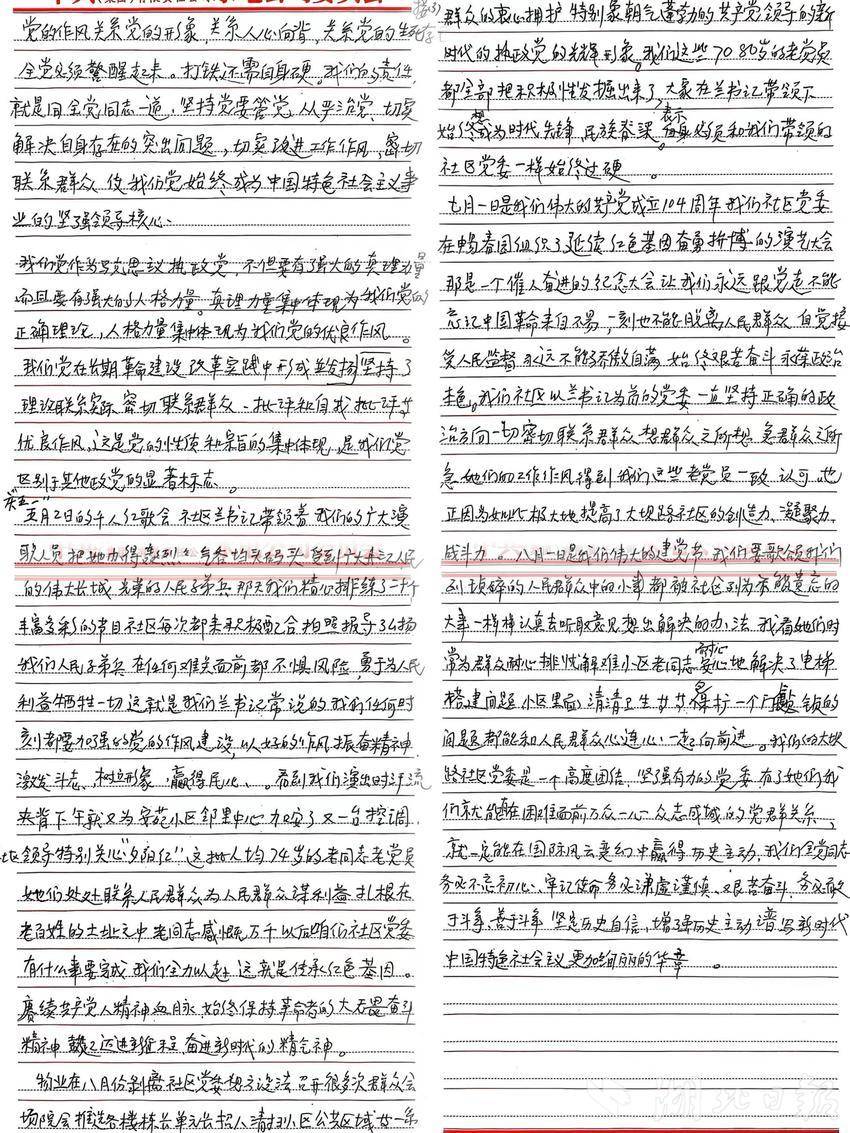 党的作风关系党的形象,关系人心向背,关系党的生死
全党必须警醒起来。打铁还需自身硬。我们的责任,
就是同全党同志一道,坚持党要管党,从严治党,切实
解决自身存在的突出问题,切实改进工作作风,密切
联系群众,使我们党始终成为中国特色社会主义事
业的坚强领导核心。
我们党作为马克思主义执政党,不但要有强大的真理力量
而且要有强大的人格力量。真理力量集中体现为我们党的
正确理论,人格力量集中体现为我们党的优良作风。
我们党在长期革命建设改革实践中形成并发扬坚持了
理论联系实际密切联系群众、批评和自我批评等
优良作风,这是党的性质和宗旨的集中体现,是我们党
区别于其他政党的显著标志。
庆五一
五月2日的千人红歌会社区兰书记带领着我们的广大演
职人员把她办得
的伟大长城光荣的人民子弟兵那天我们精心排练了二十个
丰富多彩的节目社区每次都来积极配合拍照报导弘扬
我们人民子弟兵在任何难关面前都不惧风险,勇于为人民
利益牺牲一切这就是我们兰书记常说的我们任何时
刻都要加强的党的作风建设,以好的作风振奋精神
激发斗志、树立形象、赢得民心、。看到我们演出时汗流
夹背下午就又为安苑小区邻里中心力安了又一台空调
社区领导特别关心“夕阳红”这批人均74岁的老同志老党员
她们处处联系人民群众为人民群众谋利益扎根在
老百姓的土壤之中老同志感慨万千以后咱们社区党委
有什么事要完成我们全力以赴这就是传承红色基因。
赓续共产党人精神血脉,始终保持革命者的大无畏奋斗
精神鼓起迈进新征程、奋进新时代的精气神。
物业在八月份剥离社区党委想方设法召开很多次群众会
场院会推选各楼栋长单元长招人清扫小区公共区域
群众的衷心拥护特别象朝气蓬勃的共产党领导的新
时代的执政党的光辉形象。我们这些70 80岁的老党员
都全部把积极性发掘出来了,大家在兰书记带领下
始终想成为时代先锋、民族脊梁。表示自身必须和我们带领的
社区党委一样始终过硬。
七月一日是我们伟大的共产党成立104周年我们社区党委
在畅春园组织了延续红色基因奋勇拼搏的演艺大会
那是一个催人奋进的纪念大会让我们永远跟党走不能
忘记中国革命来自不易,一刻也不能脱离人民群众自觉接
受人民监督永远不能骄傲自满始终艰苦奋斗永葆政治
本色。我们社区以兰书记为首的党委一直坚持正确的政
治方向一切密切联系群众想群众之所想急群众之所
急她们的工作作风得到我们这些老党员一致认可。也
正因为如此极大地提高了大坝路社区的创造力、凝聚力、
战斗力。八月一日是我们伟大的建党节我们要歌颂我们
到琐碎的人民群众中的小事都被社区列为不能遗忘的
大事一样样认真去听取意见想出解决的办法我看她们时
常为群众耐心排忧解难小区老同志耐心地解决了电梯
搭建问题小区里面清清卫生等等保护一个门锁的
问题都能和人民群众心连心一起向前进。我们的大坝
路社区党委是一个高度团结,坚强有力的党委有了她们我
们就能在困难面前万众一心众志成城的党群关系,
就一定能在国际风云变幻中赢得历史主动,我们全党同志
务必不忘初心、牢记使命务必谦虚谨慎、艰苦奋斗,务必敢
于斗争、善于斗争坚定历史自信、增强历史主动谱写新时代
中国特色社会主义更加绚丽的华章。
湖北日报